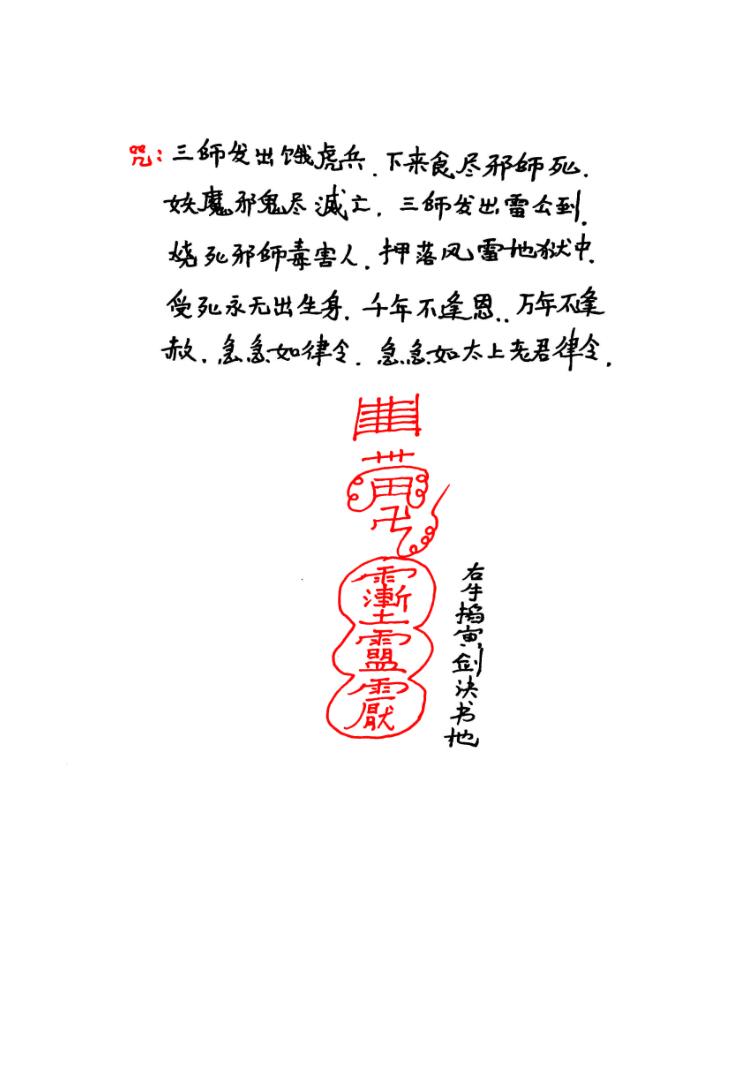 咒:三師发出饿虎兵.下来食尽邪師死.
妖魔邪鬼尽滅亡.三師发出雷公到.
烧死邪師毒害人.押落风雷地狱中.
受死永无出生身.千年不逢恩..万年不逢
赦.急急如律令.急急如太上老君律令.
右手掐寅剑决书地